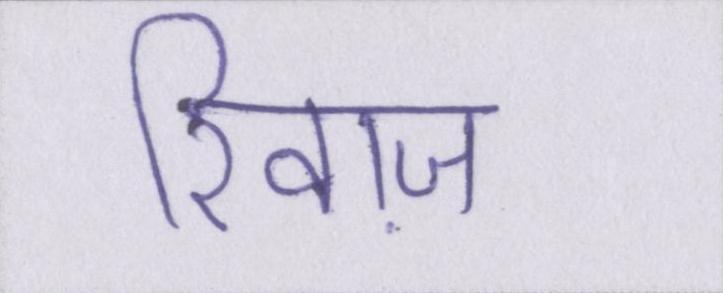 रिवाज़